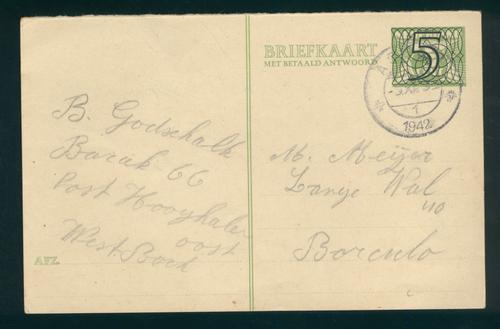 BRIEFKAART
MET BETAALD ANTWOORD
5
1
1942
B. Godschalk
Barak 66
Post Hooghalen
oost
West.Bork
AFZ.
M. Meijer
Lange Wal
40
Borculo